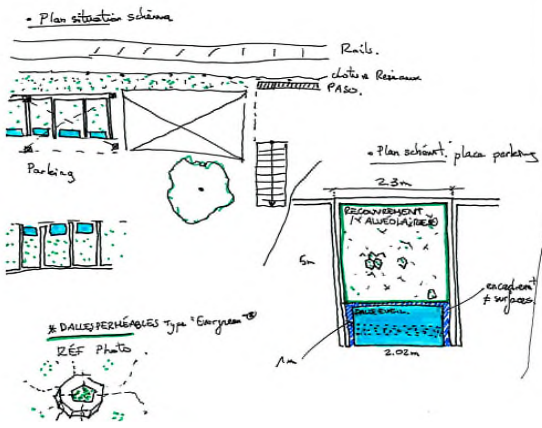 • Plan situation schéma
Rails.
clôture Réseaux
PASO.
Parking
• Plan schémt. place parking
2.3m
RECOUVREMENT
5m
encadremt
≠ surfaces.
1m
2.02m
* DALLES PERMÉABLES Type "Evergreen" ®
RÉF Photo.